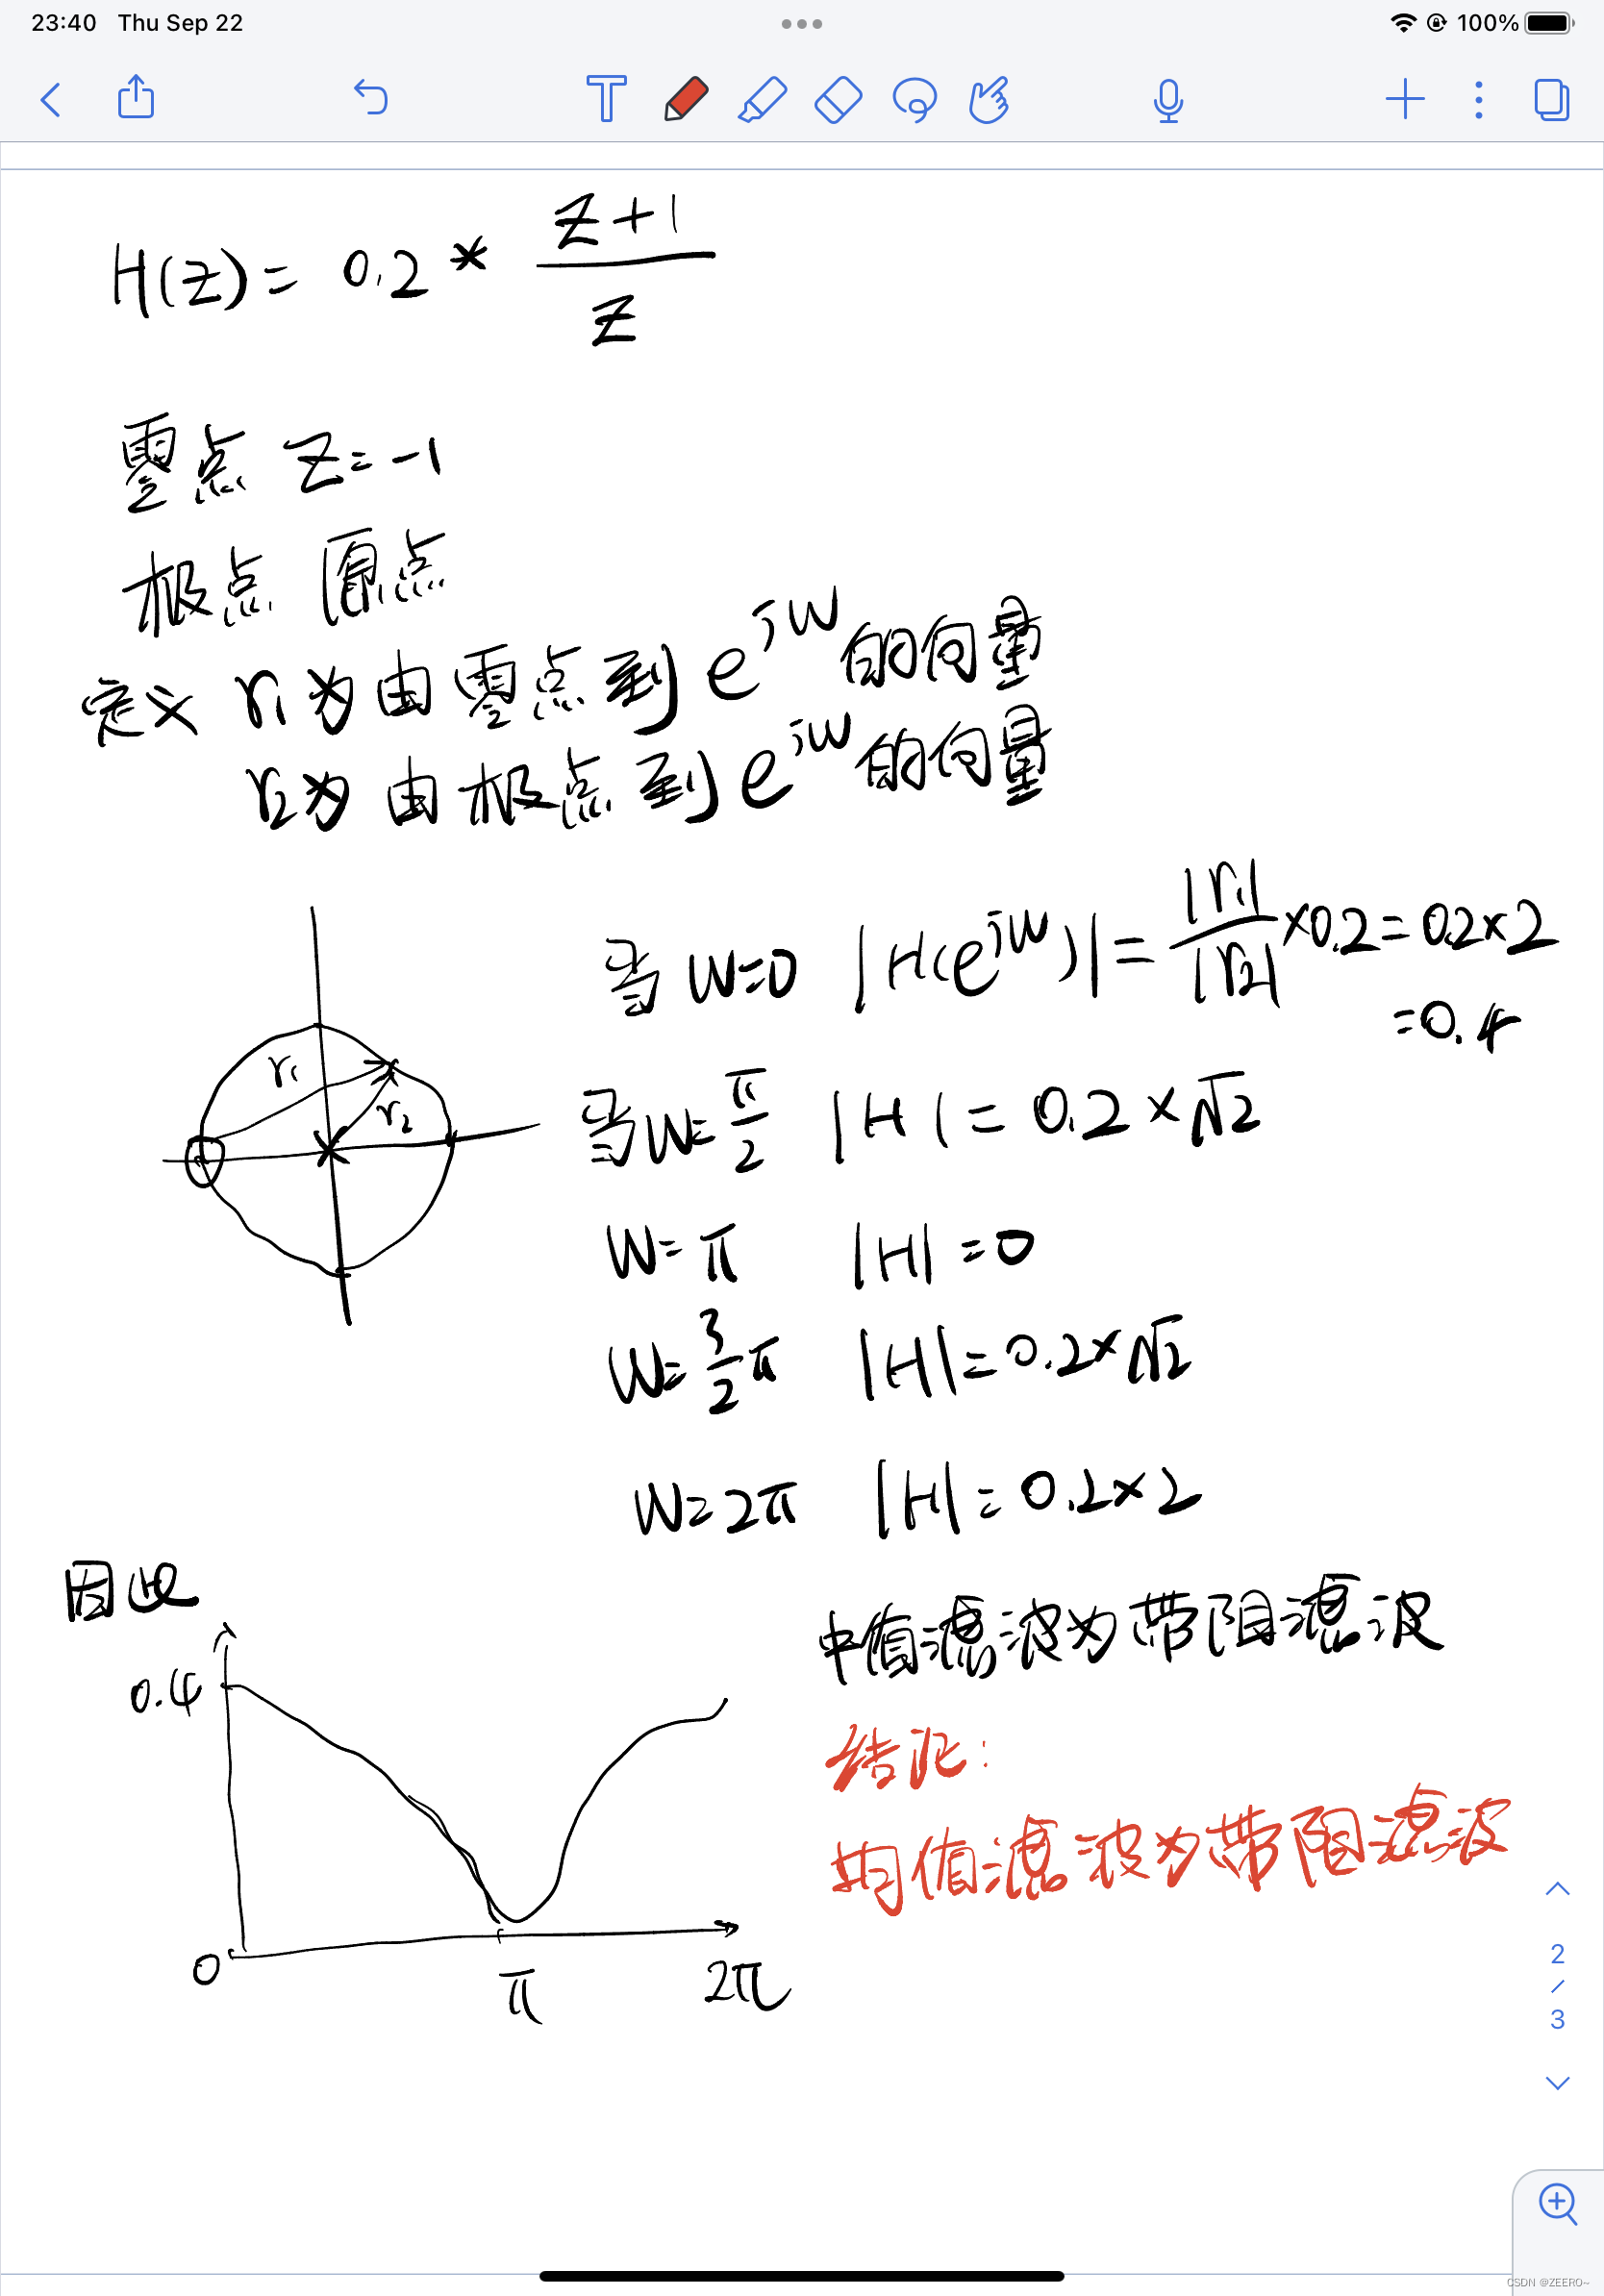 23:40 Thu Sep 22
100%
H(z) = 0.2 * \frac{z+1}{z}
零点 z=-1
极点 原点
定义 r₁为由零点到 e^{jw} 的向量
r₂为由极点到 e^{jw} 的向量
当 w=0 |H(e^{jw})| = \frac{|r₁|}{|r₂|} ×0.2 = 0.2×2
=0.4
r₁
r₂
当 w= \frac{π}{2} |H| = 0.2 × √2
w= π |H| = 0
w= \frac{3}{2}π |H| = 0.2×√2
w= 2π |H| = 0.2×2
因此
中值滤波为带阻滤波
0.4
结论:
均值滤波为带阻滤波
0
π
2π
2
/
3
CSDN @ZEERO~